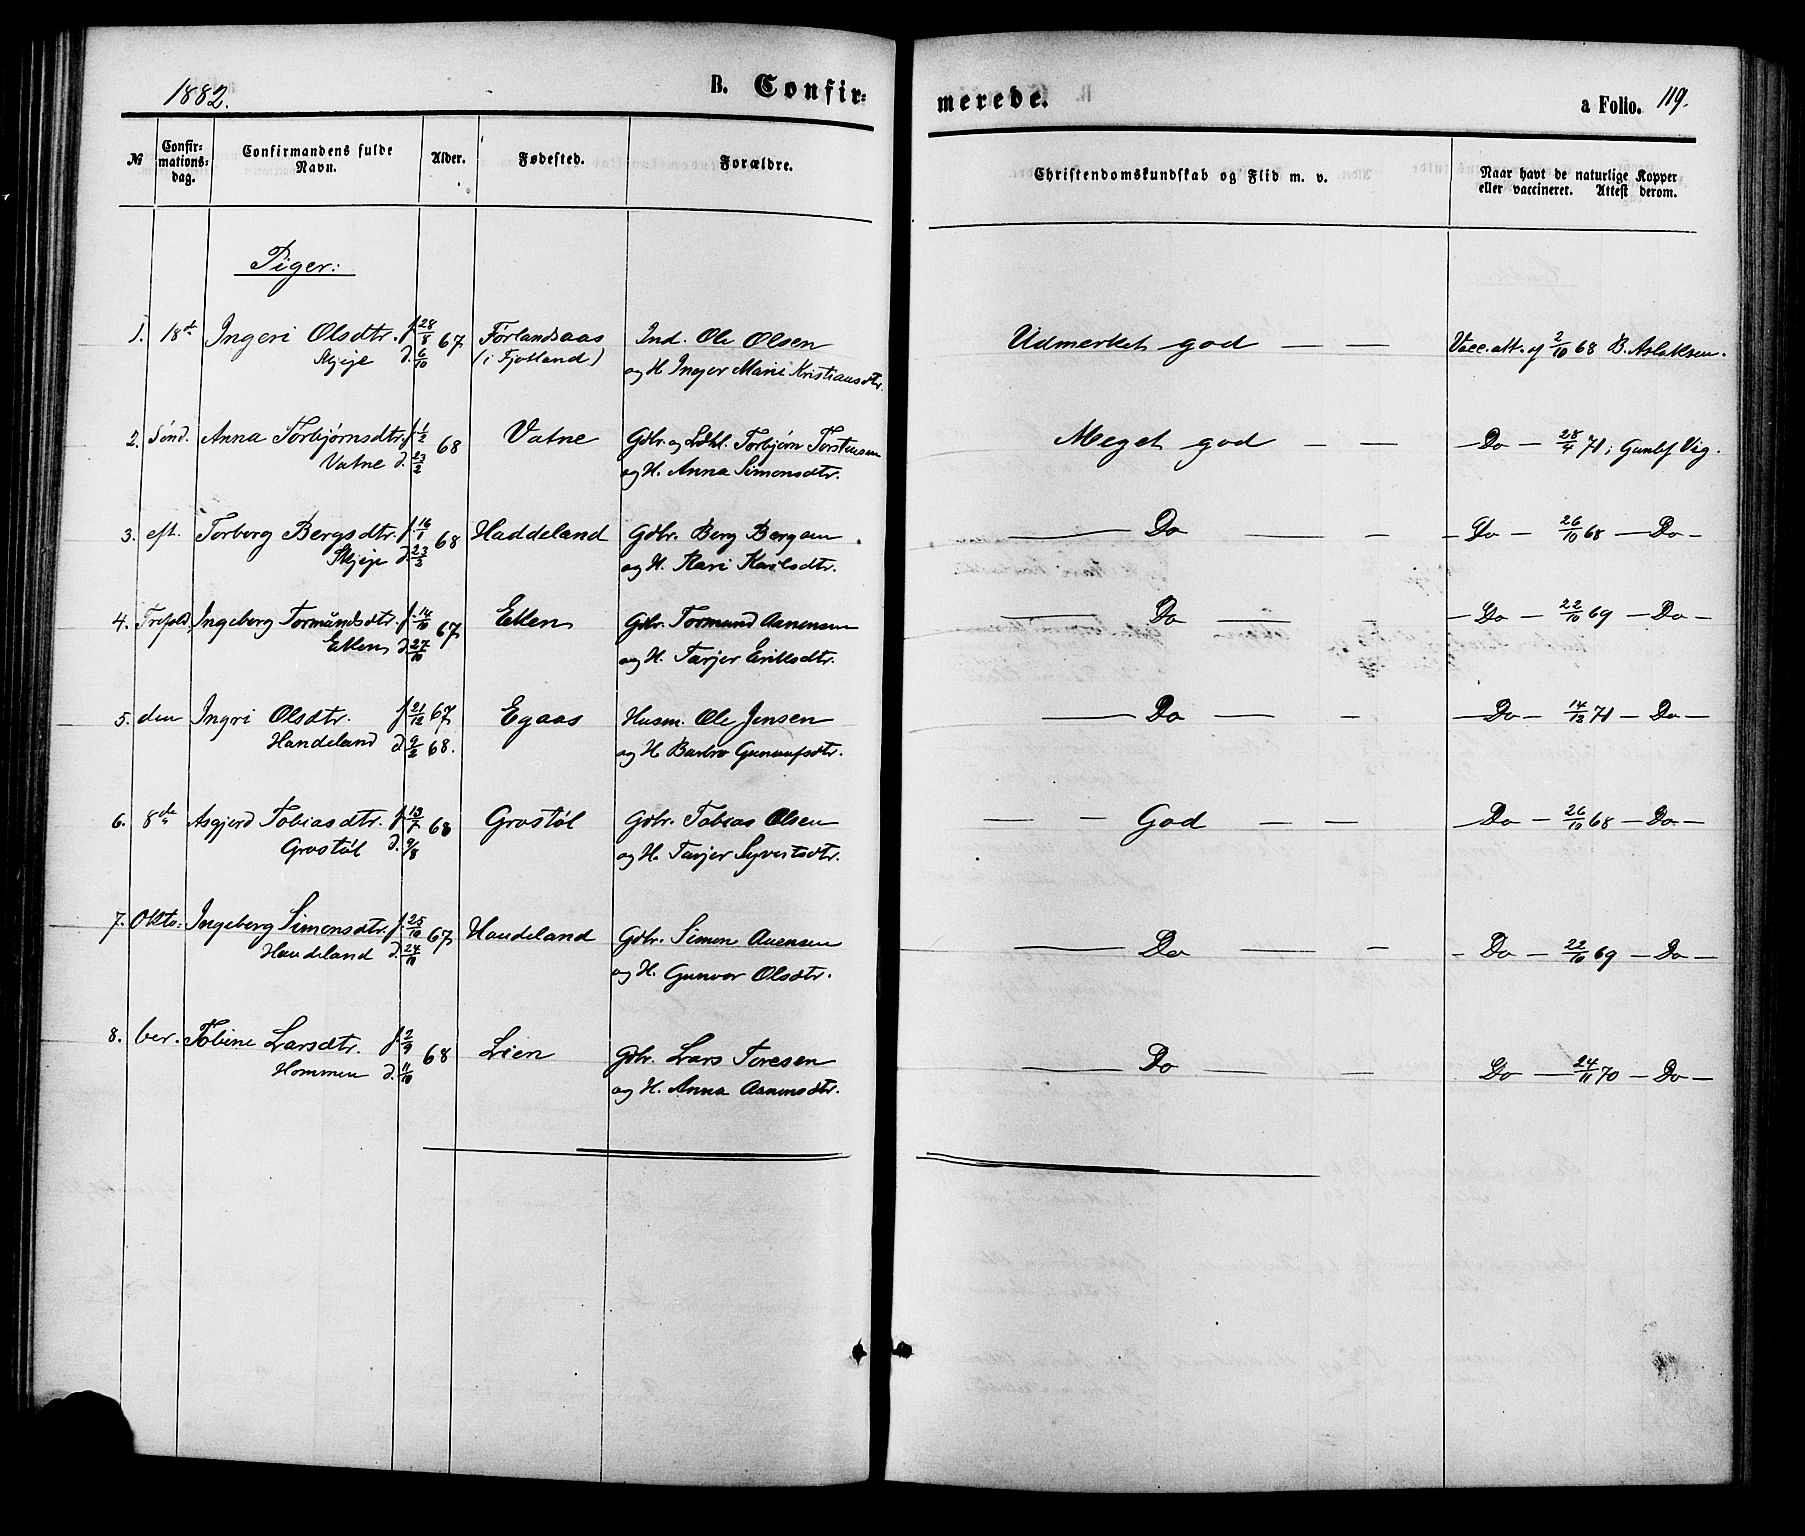 1882.
B. Confir=
merede.
a Folio. 119.
№
Confir=
mations=
dag.
Confirmandens fulde
Navn.
Alder.
Fødested.
Forældre.
Christendomskundskab og Flid m. v.
Naar havt de naturlige Kopper
eller vaccineret. Attest derom.
Piger:
1. 18de Ingeri Olsdtr. f. 28/8 67 Førlandsaas Ind. Ole Olsen Udmerket god — — Vacc. att. af 2/10 68 B. Aslaksen.
Skjeje d. 6/10 (i Fjotland) og H. Inger Marie Kristiansdtr.
2. Sønd. Anna Torbjørnsdtr. f. 1/2 68 Vatne Gdbr. og Ldhl. Torbjørn Torstensen Meget god — — — Do — 28/4 71; Gunlf Vig.
Vatne d. 23/2 og H. Anna Simonsdtr.
3. eft. Torborg Bergsdtr. f. 16/1 68 Haddeland Gdbr. Berg Bergsen — Do — — — Do — 26/10 68 — Do —
Skjeje d. 23/3 og H. Kari Karlsdtr.
4. Trefold. Ingeborg Tormundsdtr. f. 14/10 67 Eiken Gdbr. Tormund Aanensen — Do — — — Do — 22/10 69 — Do —
Eiken d. 27/10 og H. Tarjer Eriksdtr.
5. den Ingri Olsdtr. f. 21/12 67 Egaas Husm. Ole Jensen — Do — — — Do — 14/12 71 — Do —
Handeland d. 9/2 68. og H. Barbro Gunnufsdtr.
6. 8de Asgjerd Tobiasdtr. f. 13/7 68 Grostøl Gdbr. Tobias Olsen — — God — — — Do — 26/10 68 — Do —
Grostøl d. 9/8 og H. Tarjer Syvertsdtr.
7. Okto= Ingeborg Simonsdtr. f. 25/10 67 Haudeland Gdbr. Simon Anensen — Do — — — Do — 22/10 69 — Do —
Haudeland d. 24/11 og H. Gunvor Olsdtr.
8. ber. Tobine Larsdtr. f. 2/9 68 Lien Gdbr. Lars Toresen — Do — — Do — 24/11 70 — Do —
Hommen d. 11/10 og H. Anna Aanensdtr.